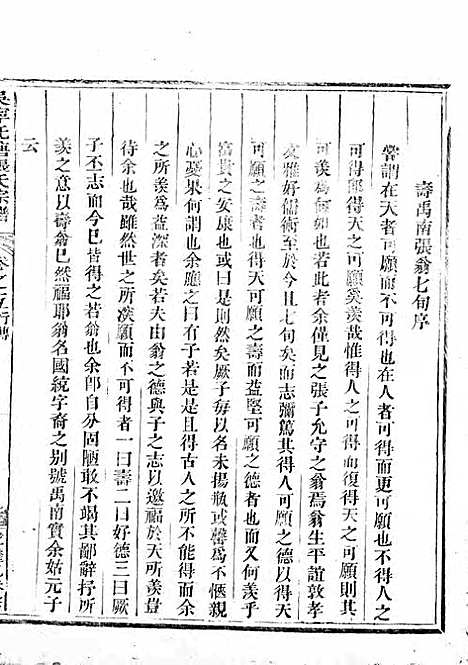 壽禹南張翁七旬序
嘗謂在天者可願而不可得在人者可得而不可願不得人之
可得郎得天之可願奚羨哉惟得人之可得而並得天之可願則其
可羨爲何如者余僅見之張子允守之翁焉翁生平誼敦孝
友雅好儒術至於今且七旬矣而志彌篤其得人可願之德以得天
可願之壽而益堅可願之德者也而又何羨乎
富貴之安康也或曰是則然矣厥子每以名未揚瓶或罄爲不愜親
心憂果何謂也余應之曰有子若是是且得古人之所不能得而余
之所羨爲益深者若夫由翁之德與子之志以邀福於天所羨豈
待余哉雖然世之所深願而不可得者一曰壽二曰好德三曰厥
子丕志而今已皆得之若翁也余卽自分固陋敢不竭其鄙辭抒所
羨之意以壽翁已然福耶翁名國統字裔之别號禹南實余始元子
云
吳寧托塘張氏宗譜
卷之